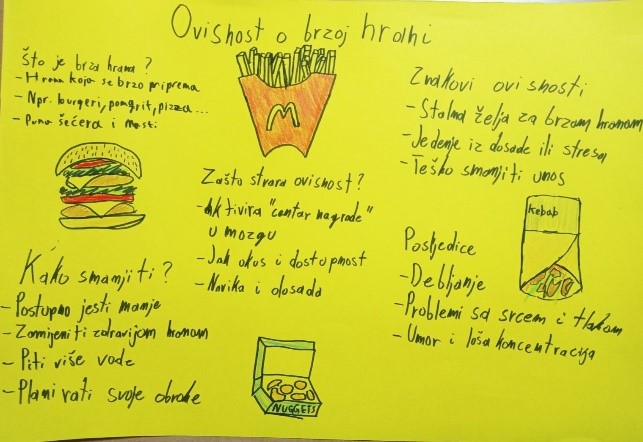 Ovisnost o brzoj hrani
Što je brza hrana?
- Hrana koja se brzo priprema
- Npr. burgeri, pomfrit, pizza...
- Puno šećera i masti
M
Znakovi ovisnosti
- Stalna želja za brzom hranom
- Jedenje iz dosade ili stresa
- Teško smanjiti unos
Zašto stvara ovisnost?
- Aktivira "centar nagrade"
u mozgu
- Jak okus i dostupnost
- Navika i dosada
Kebab
Posljedice
- Debljanje
- Problemi sa srcem i tlakom
- Umor i loša koncentracija
Kako smanjiti?
- Postupno jesti manje
- Zamijeniti zdravijom hranom
- Piti više vode
- Planirati svoje obroke
NUGGETS